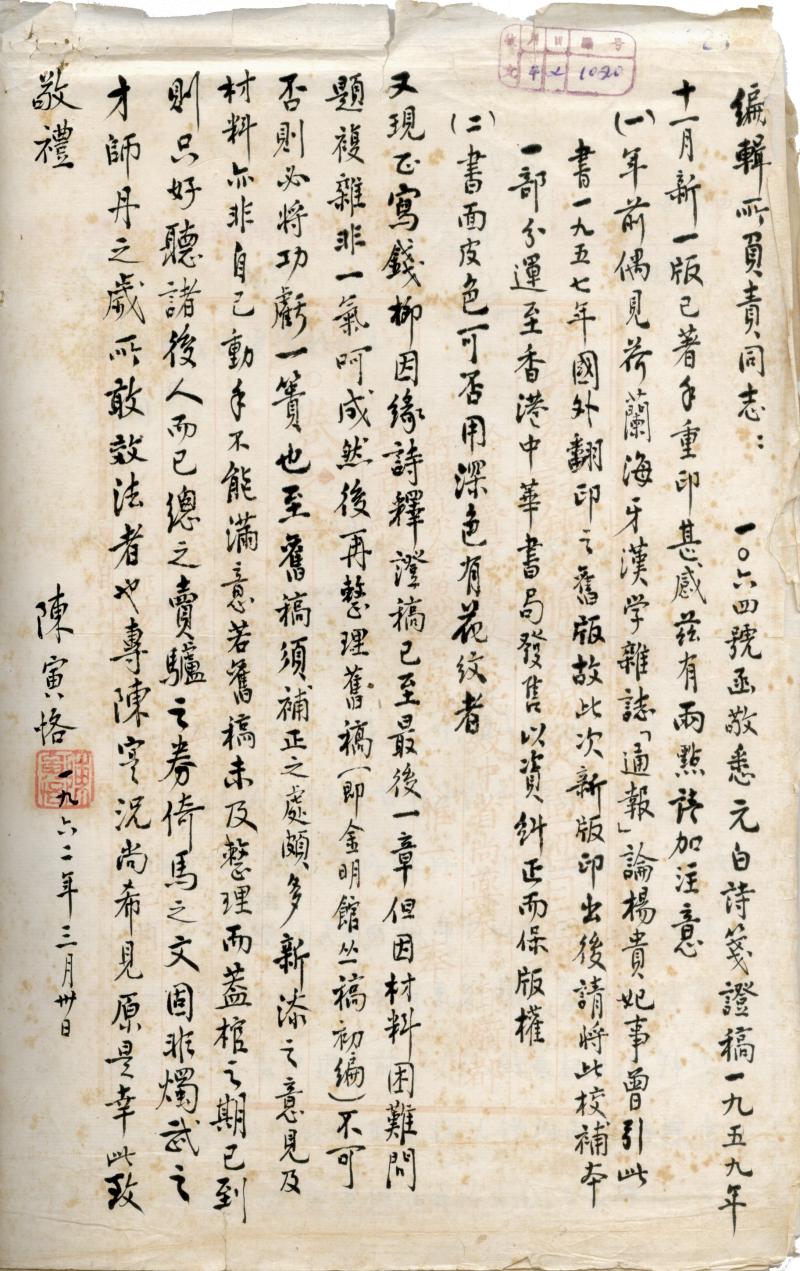 編輯所負責同志： 一〇六四號函敬悉元白詩箋證稿一九五九年
十一月新一版已著手重印甚感茲有兩點請加注意
㈠年前偶見荷蘭海牙漢学雜誌「通報」論楊貴妃事曾引此
書一九五七年國外翻印之舊版故此次新版印出後請將此校補本
一部分運至香港中華書局發售以資糾正而保版權
㈡書面皮色可否用深色有花紋者
又現正寫錢柳因緣詩釋證稿已至最後一章但因材料困難問
題複雜非一氣呵成然後再整理舊稿（即金明館丛稿初編）不可
否則必將功虧一簣也至舊稿須補正之處頗多新添之意見及
材料亦非自己動手不能滿意若舊稿未及整理而蓋棺之期已到
則只好聽諸後人而已總之賣驢之券倚馬之文固非燭武之
才師丹之歲所敢效法者也專陳實況尚希見原是幸此致
敬禮
陳寅恪 一九六二年三月卅日
收 年 月 日 編 号
文 1020